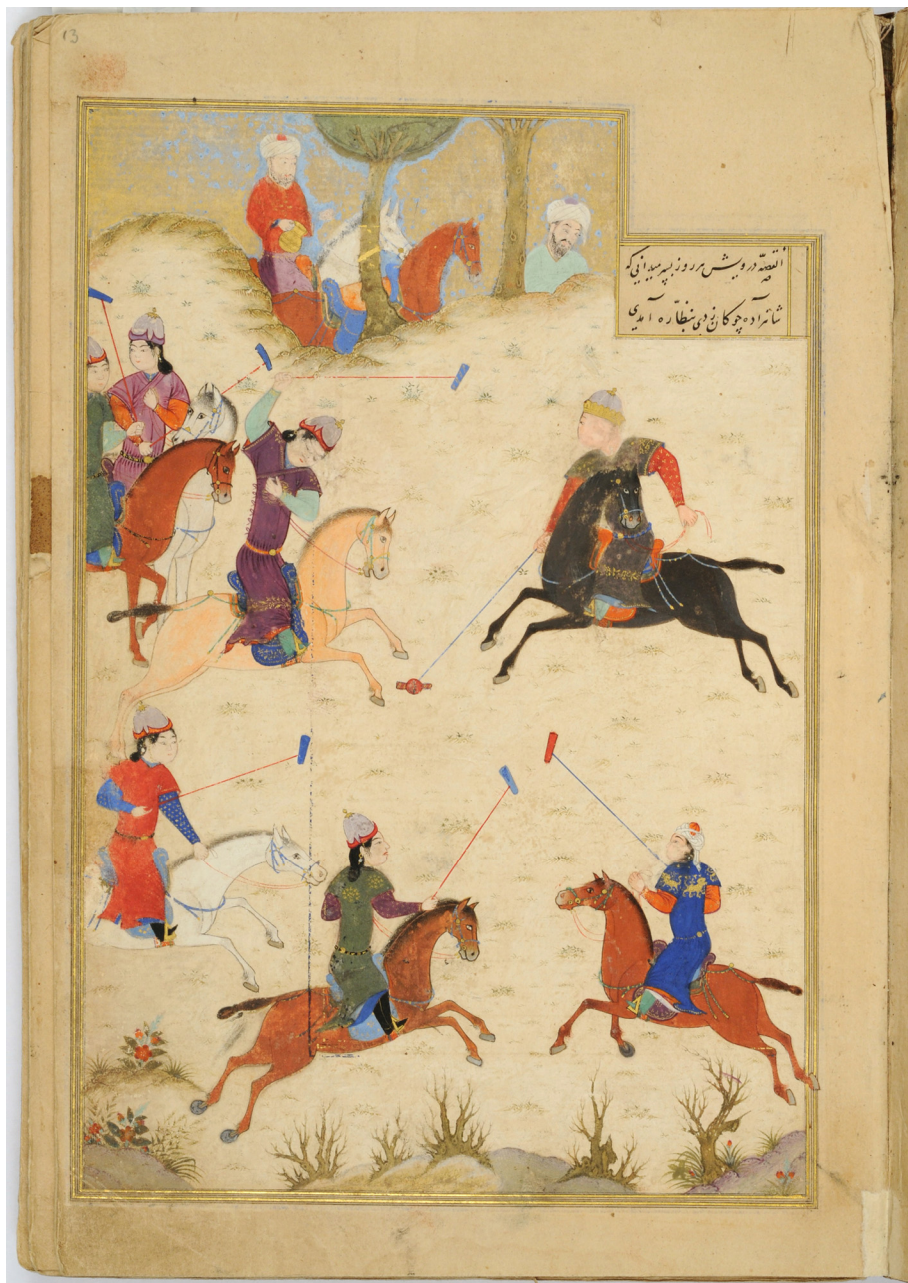 13
القصّه درویش هر روز بسر میدانی که
شاهزاده چوکان زدی بنظّاره آمدی